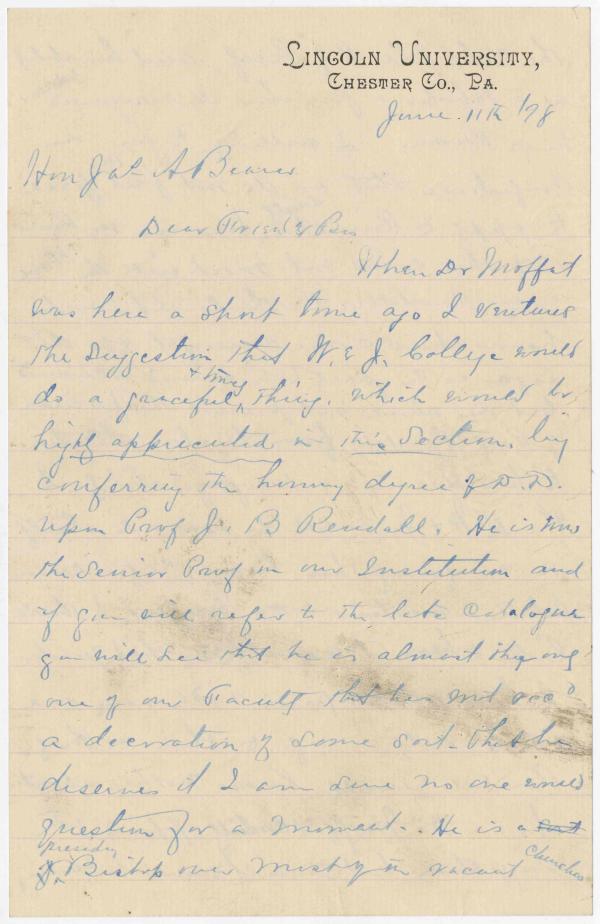 LINCOLN UNIVERSITY,
CHESTER CO., PA.
June 11th /78
Hon Jas A Beaver
Dear Friend & Bro
When Dr Moffat
was here a short time ago I ventured
the suggestion that W. & J. College would
do a graceful + thing, which would be
highly appreciated in this Section, by
conferring the honory degree of D.D.
upon Prof J. B Rendall. He is now
the Senior Prof in our Institution and
if you will refer to the late Catalogue
you will see that he is almost the only
one of our Faculty that has not recd
a decoration of some sort - That he
deserves it I am sure no one would
question for a moment. He is a sort
presiding
of Bishop over most of the vacant churches